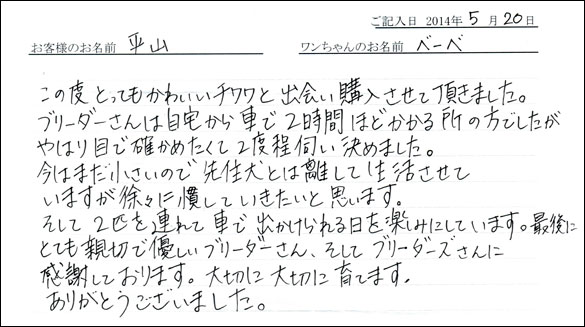 ご記入日 2014年 5月 20日
お客様のお名前 平山 ワンちゃんのお名前 べーべ
この度とってもかわいいチワワと出会い購入させて頂きました。
ブリーダーさんは自宅から車で2時間ほどかかる所の方でしたが
やはり目で確かめたくて2度程伺い決めました。
今はまだ小さいので先住犬とは離して生活させて
いますが徐々に慣していきたいと思います。
そして2匹を連れて車で出かけられる日を楽しみにしています。最後に
とても親切で優しいブリーダーさん、そしてブリーダーズさんに
感謝しております。大切に大切に育てます。
ありがとうございました。